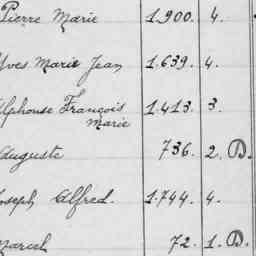 Pierre Marie 1.900. 4.
Yves Marie Jean 1.639. 4.
Alphonse François 1.413. 3.
Marie
Auguste 736. 2. D.
Joseph Alfred. 1.744. 4.
Marcel 72. 1. D.